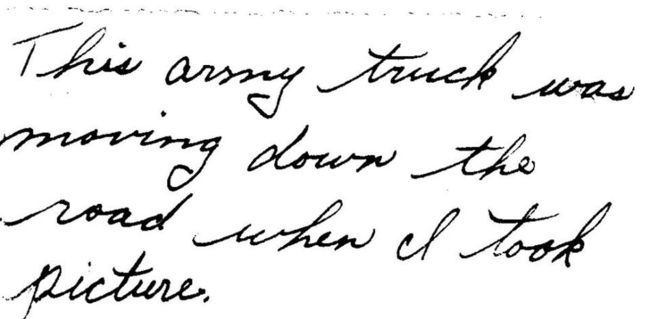 This army truck was
moving down the
road when I took
picture.